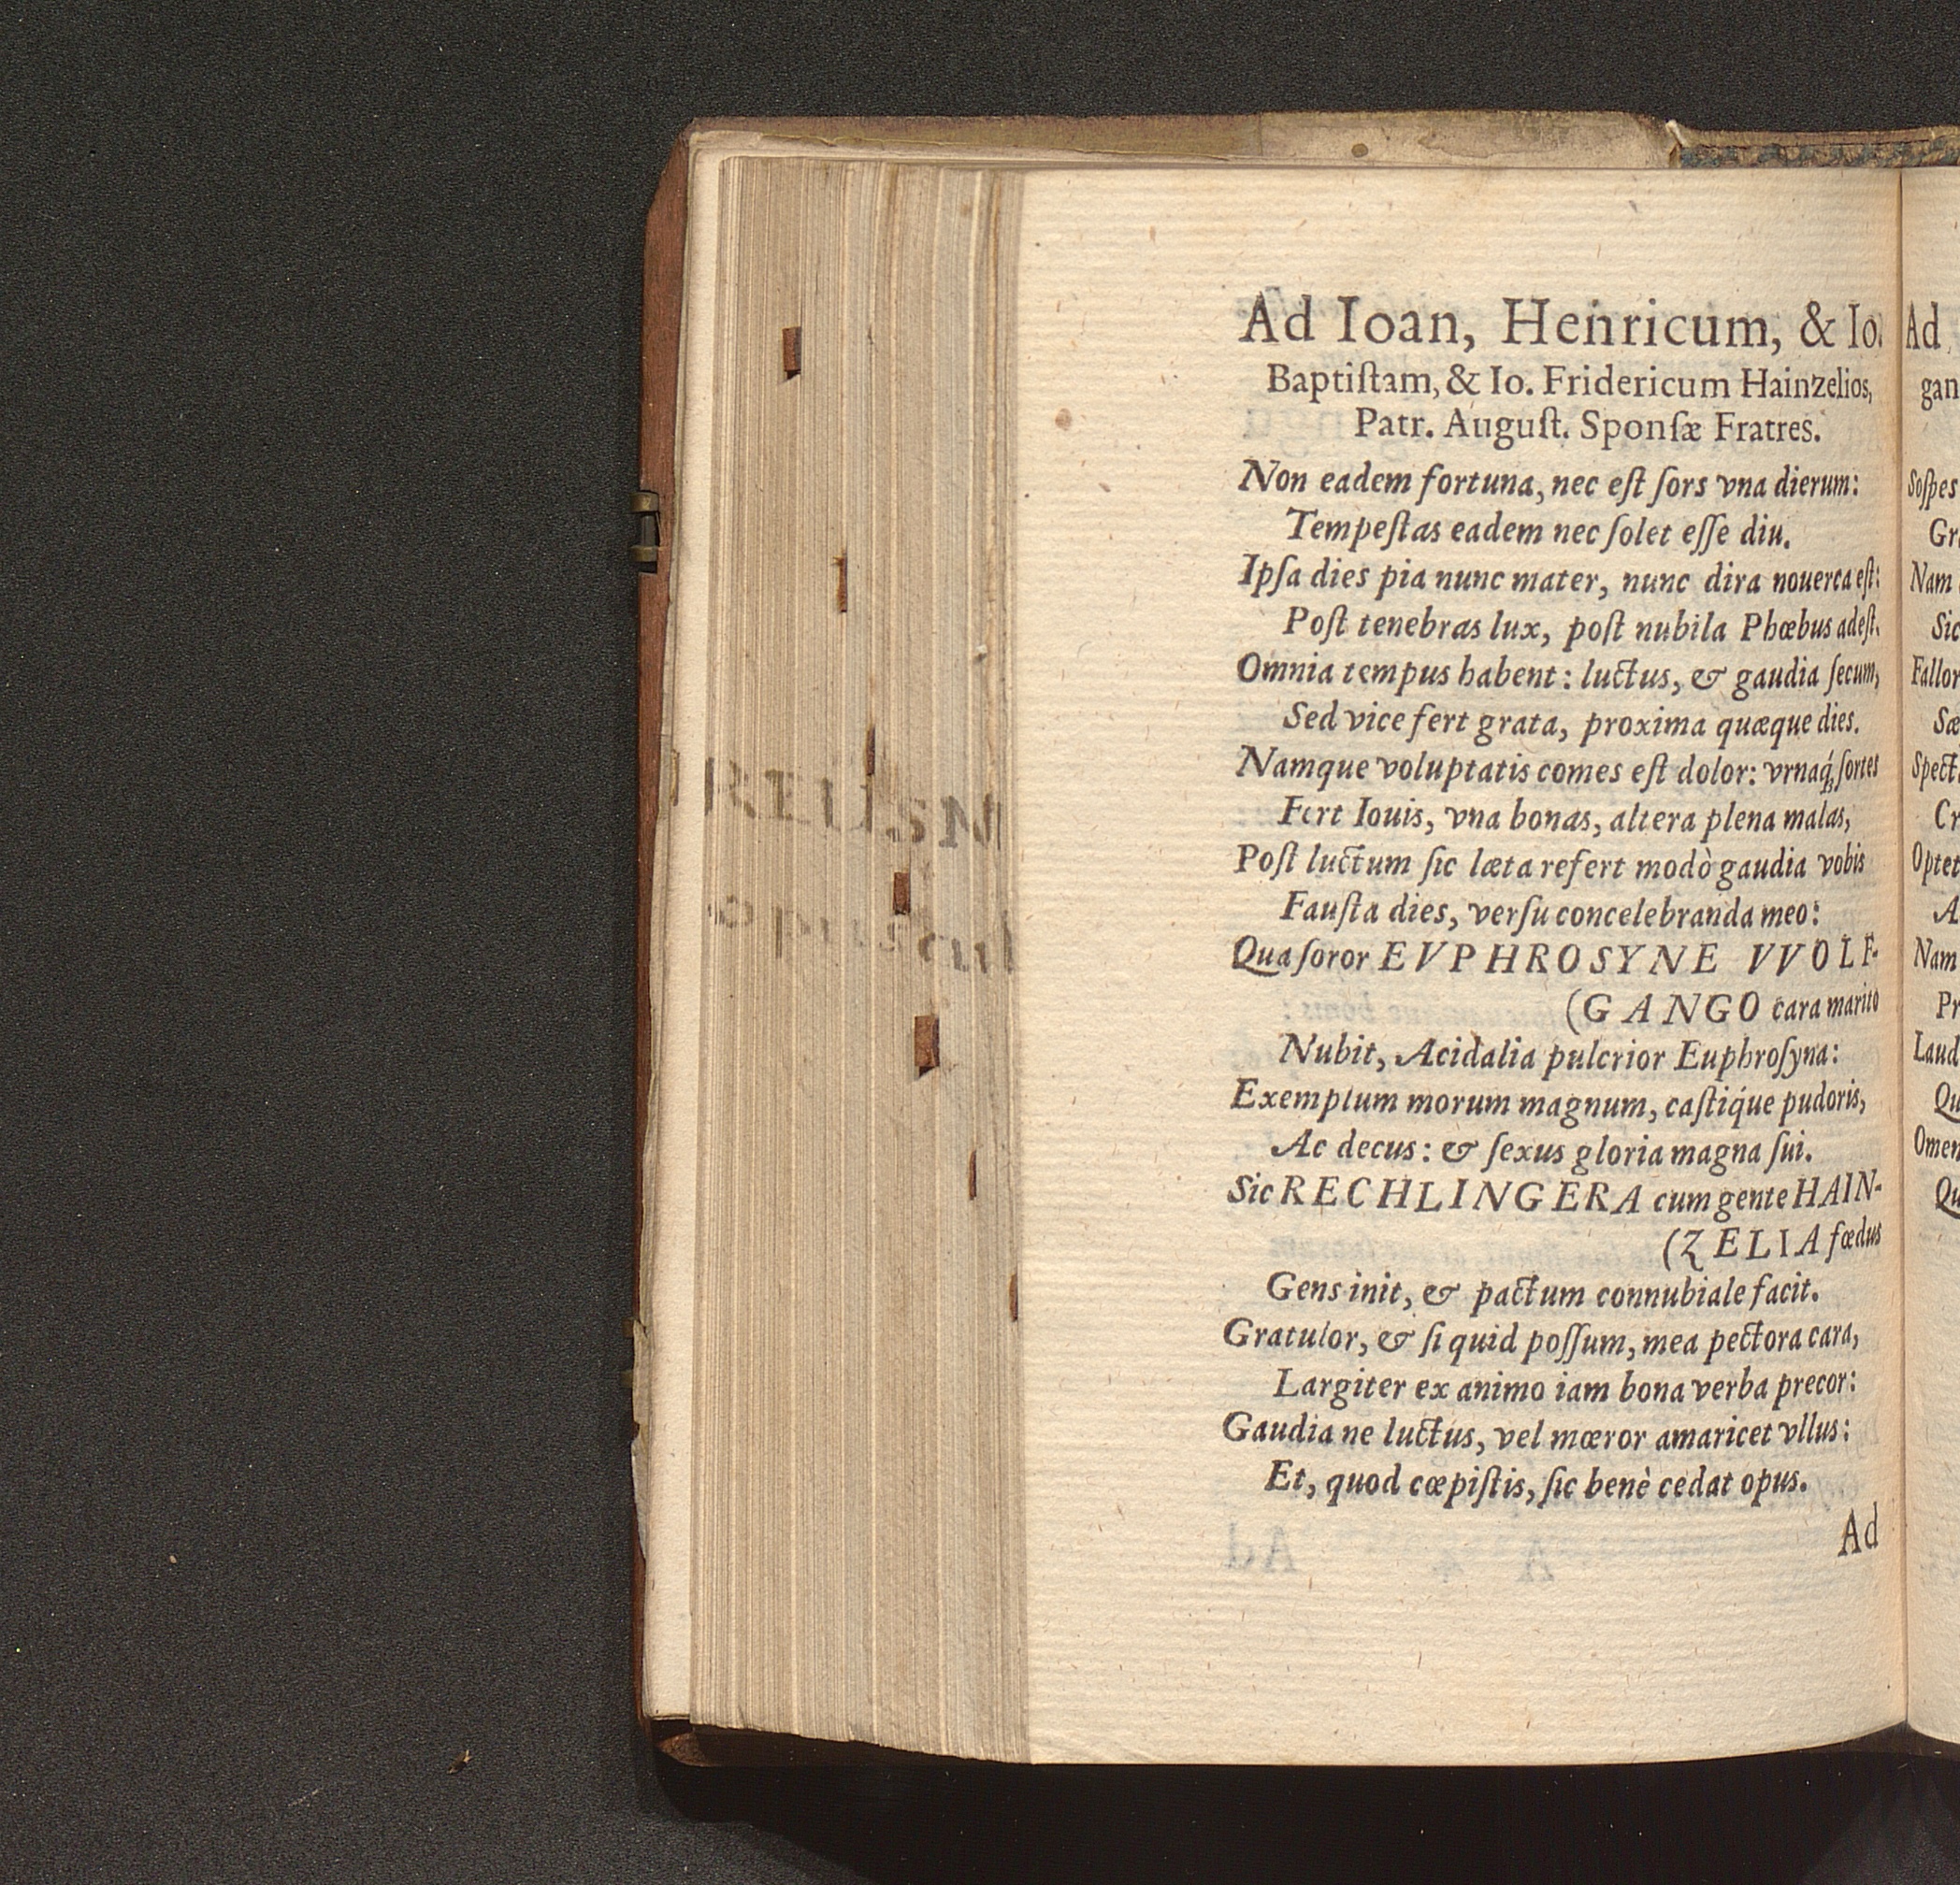 Ad Ioan, Henricum, & Io.
Baptiſtam, & Io. Fridericum Hainzelios,
Patr. Auguſt. Sponſæ Fratres.
Non eadem fortuna, nec eſt ſors vna dierum:
Tempeſtas eadem nec ſolet eſſe diu.
Ipſa dies pia nunc mater, nunc dira nouerca eſt:
Poſt tenebras lux, poſt nubila Phœbus adeſt.
Omnia tempus habent: luctus, & gaudia ſecum,
Sed vice fert grata, proxima quæque dies.
Namque voluptatis comes eſt dolor: vrnaq́ꝫ ſortes
Fert Iouis, vna bonas, altera plena malas,
Poſt luctum ſic læta refert modò gaudia vobis
Fauſta dies, verſu concelebranda meo:
Qua ſoror EVPHROSYNE VVOLF-
(GANGO cara marito
Nubit, Acidalia pulcrior Euphroſyna:
Exemplum morum magnum, caſtiq́ue pudoris,
Ac decus: & ſexus gloria magna ſui.
Sic RECHLINGERA cum gente HAIN-
(ZELIA fœdus
Gens init, & pactum connubiale facit.
Gratulor, & ſi quid poſſum, mea pectora cara,
Largiter ex animo iam bona verba precor:
Gaudia ne luctus, vel mœror amaricet vllus:
Et, quod cœpiſtis, ſic benè cedat opus.
Ad
Ad
gan
Soſpes
Gr
Nam
Sic
Fallor
Sæ
Spect
Cr
Optet
A
Nam
Pr
Laud
Qu
Omen
Qu